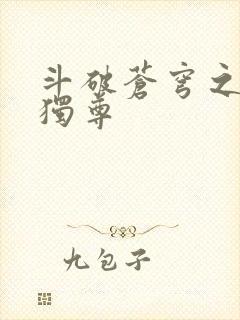 斗破蒼穹之
獨尊
九包子